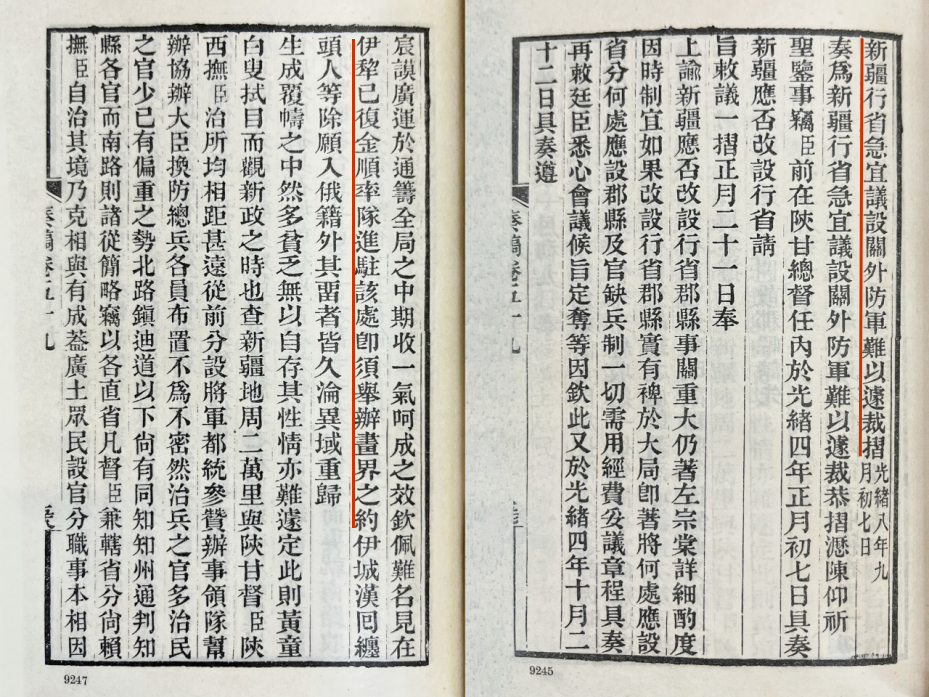 新疆行省急宜議設關外防軍難以遽裁摺光緒八年九
月初七日
奏爲新疆行省急宜議設關外防軍難以遽裁恭摺瀝陳仰祈
聖鑒事竊臣前在陝甘總督任內於光緒四年正月初七日具奏
新疆應否改設行省請
旨敕議一摺正月二十一日奉
上諭新疆應否改設行省郡縣事關重大仍著左宗棠詳細酌度
因時制宜如果改設行省郡縣實有裨於大局卽著將何處應設
省分何處應設郡縣及官缺兵制一切需用經費妥議章程具奏
再敕廷臣悉心會議候旨定奪等因欽此又於光緒四年十月二
十二日具奏遵
奏稿卷五十九
9245
宸謨廣運於通籌全局之中期收一氣呵成之效欽佩難名見在
伊犂已復金順率隊進駐該處卽須舉辦畫界之約伊城漢回纏
頭人等除願入俄籍外其畱者皆久淪異域重歸
生成覆幬之中然多貧乏無以自存其性情亦難遽定此則黃童
白叟拭目而觀新政之時也查新疆地周二萬里與陝甘督臣陝
西撫臣治所均相距甚遠從前分設將軍都統參贊辦事領隊幫
辦協辦大臣換防總兵各員布置不爲不密然治兵之官多治民
之官少已有偏重之勢北路鎭迪道以下尙有同知知州通判知
縣各官而南路則諸從簡略竊以各直省凡督臣兼轄省分尙賴
撫臣自治其境乃克相與有成葢廣土眾民設官分職事本相因
奏稿卷五十九
9247